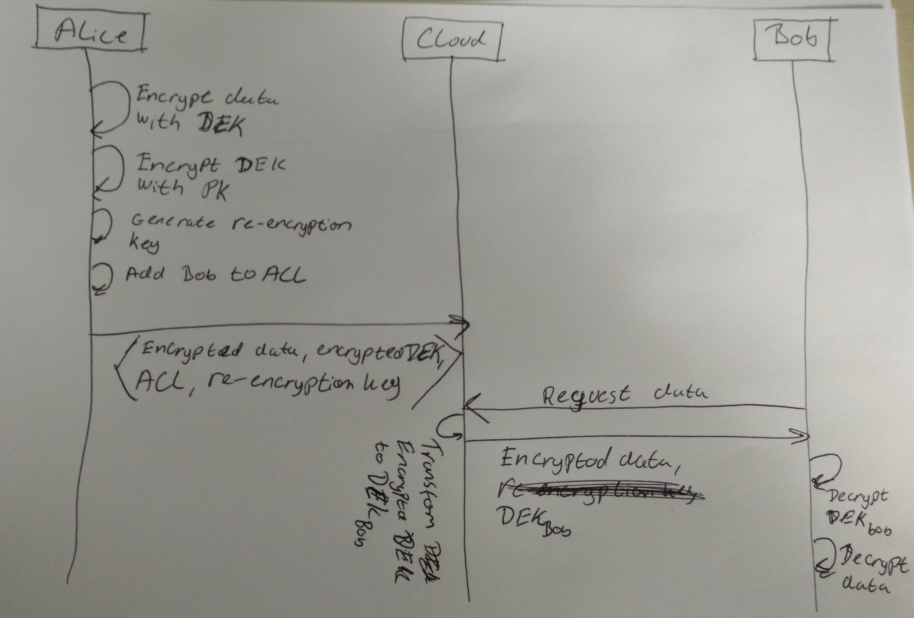 Alice
Cloud
Bob
Encrypt data
with DEK
Encrypt DEK
with PK
Generate re-encryption
key
Add Bob to ACL
Encrypted data, encrypted DEK,
ACL, re-encryption key
Request data
Transform DEK
Encrypted DEK
to DEK Bob
Encrypted data,
re-encryption key
DEK Bob
Decrypt
DEK bob
Decrypt
data